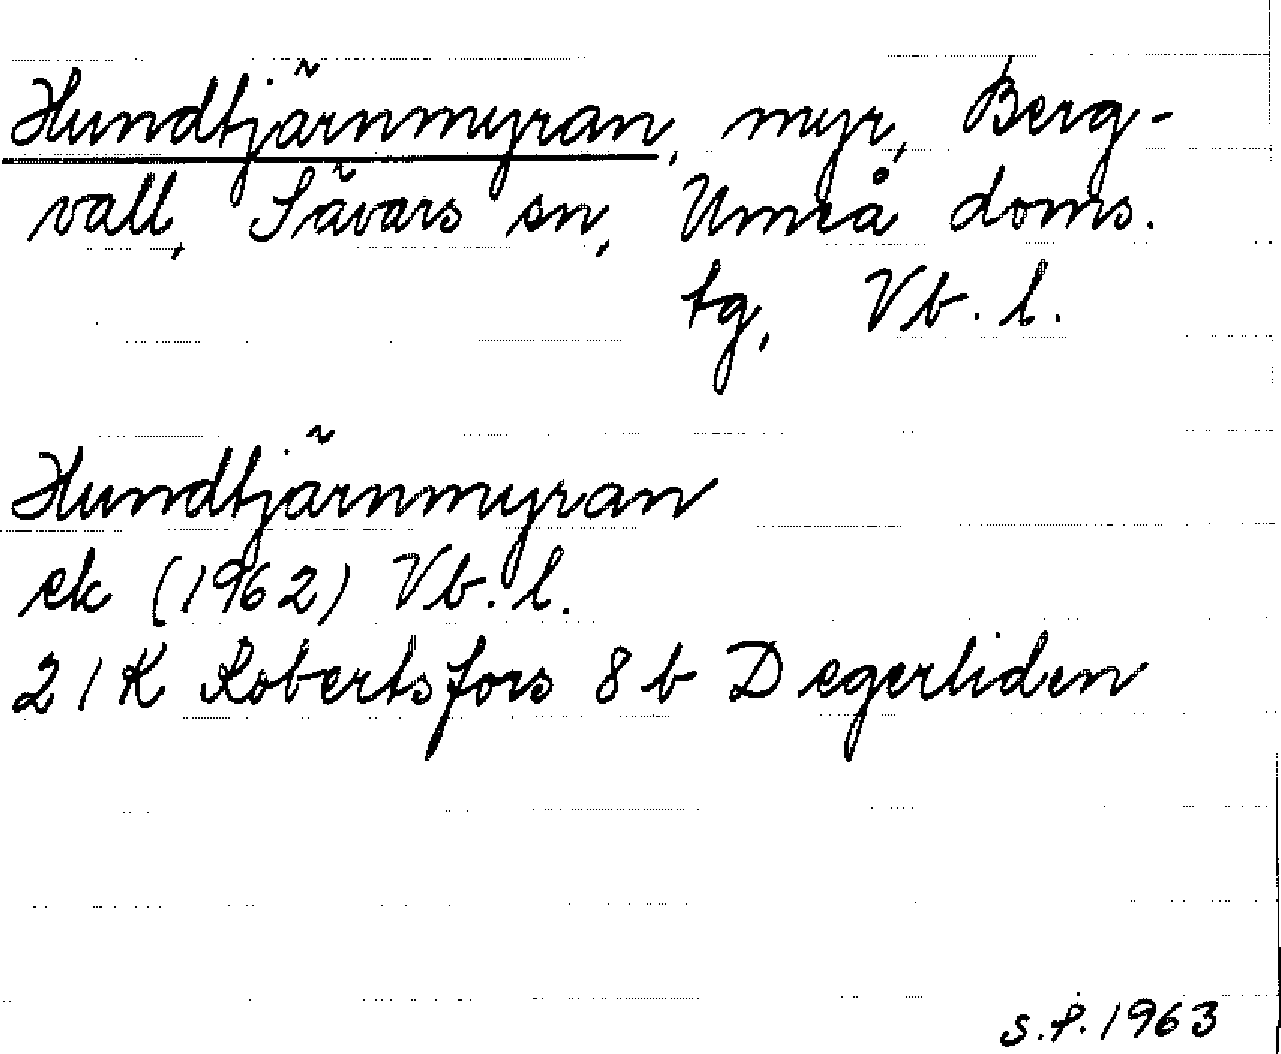 Hundtjärnmyran, myr, Berg-
vall, Sävars sn, Umeå doms.
tg, Vb. l.
Hundtjärnmyran
ek (1962) Vb. l.
21K Robertsfors 8 b Degerliden
S.P. 1963